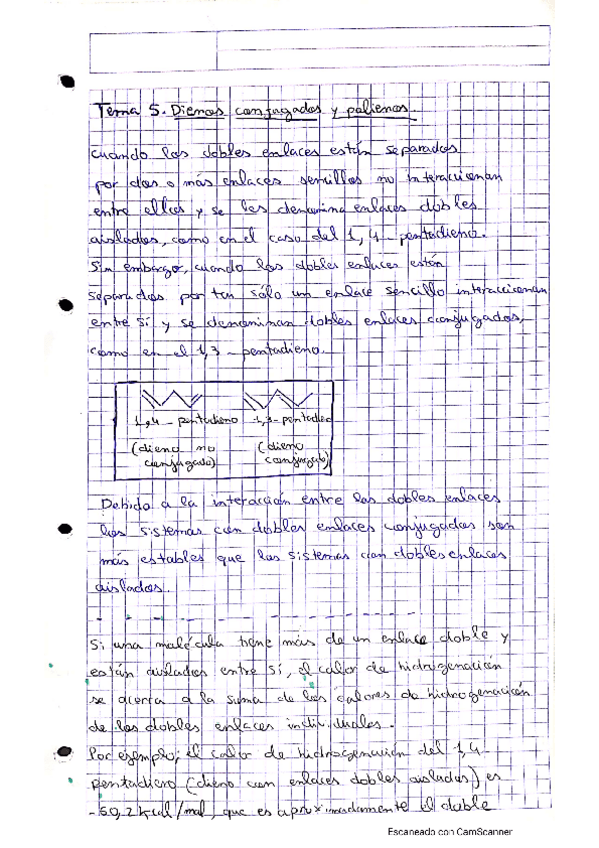 Tema 5. Dienos conjugados y polienos.
Cuando los dobles enlaces están separados
por dos o más enlaces sencillos no interaccionan
entre ellos y se les denomina enlaces dobles
aislados, como en el caso del 1,4-pentadieno.
Sin embargo, cuando los dobles enlaces están
separados por tan sólo un enlace sencillo interaccionan
entre sí y se denominan dobles enlaces conjugados,
como en el 1,3-pentadieno.
1,4-pentadieno 1,3-pentadieno
(dieno no conjugado) (dieno conjugado)
Debido a la interacción entre los dobles enlaces
los sistemas con dobles enlaces conjugados son
más estables que los sistemas con dobles enlaces
aislados.
Si una molécula tiene más de un enlace doble y
están aislados entre sí, el calor de hidrogenación
se acerca a la suma de los calores de hidrogenación
de los dobles enlaces individuales.
Por ejemplo, el calor de hidrogenación del 1,4-
pentadieno (dieno con enlaces dobles aislados) es
-60,2 kcal/mol, que es aproximadamente el doble
Escaneado con CamScanner